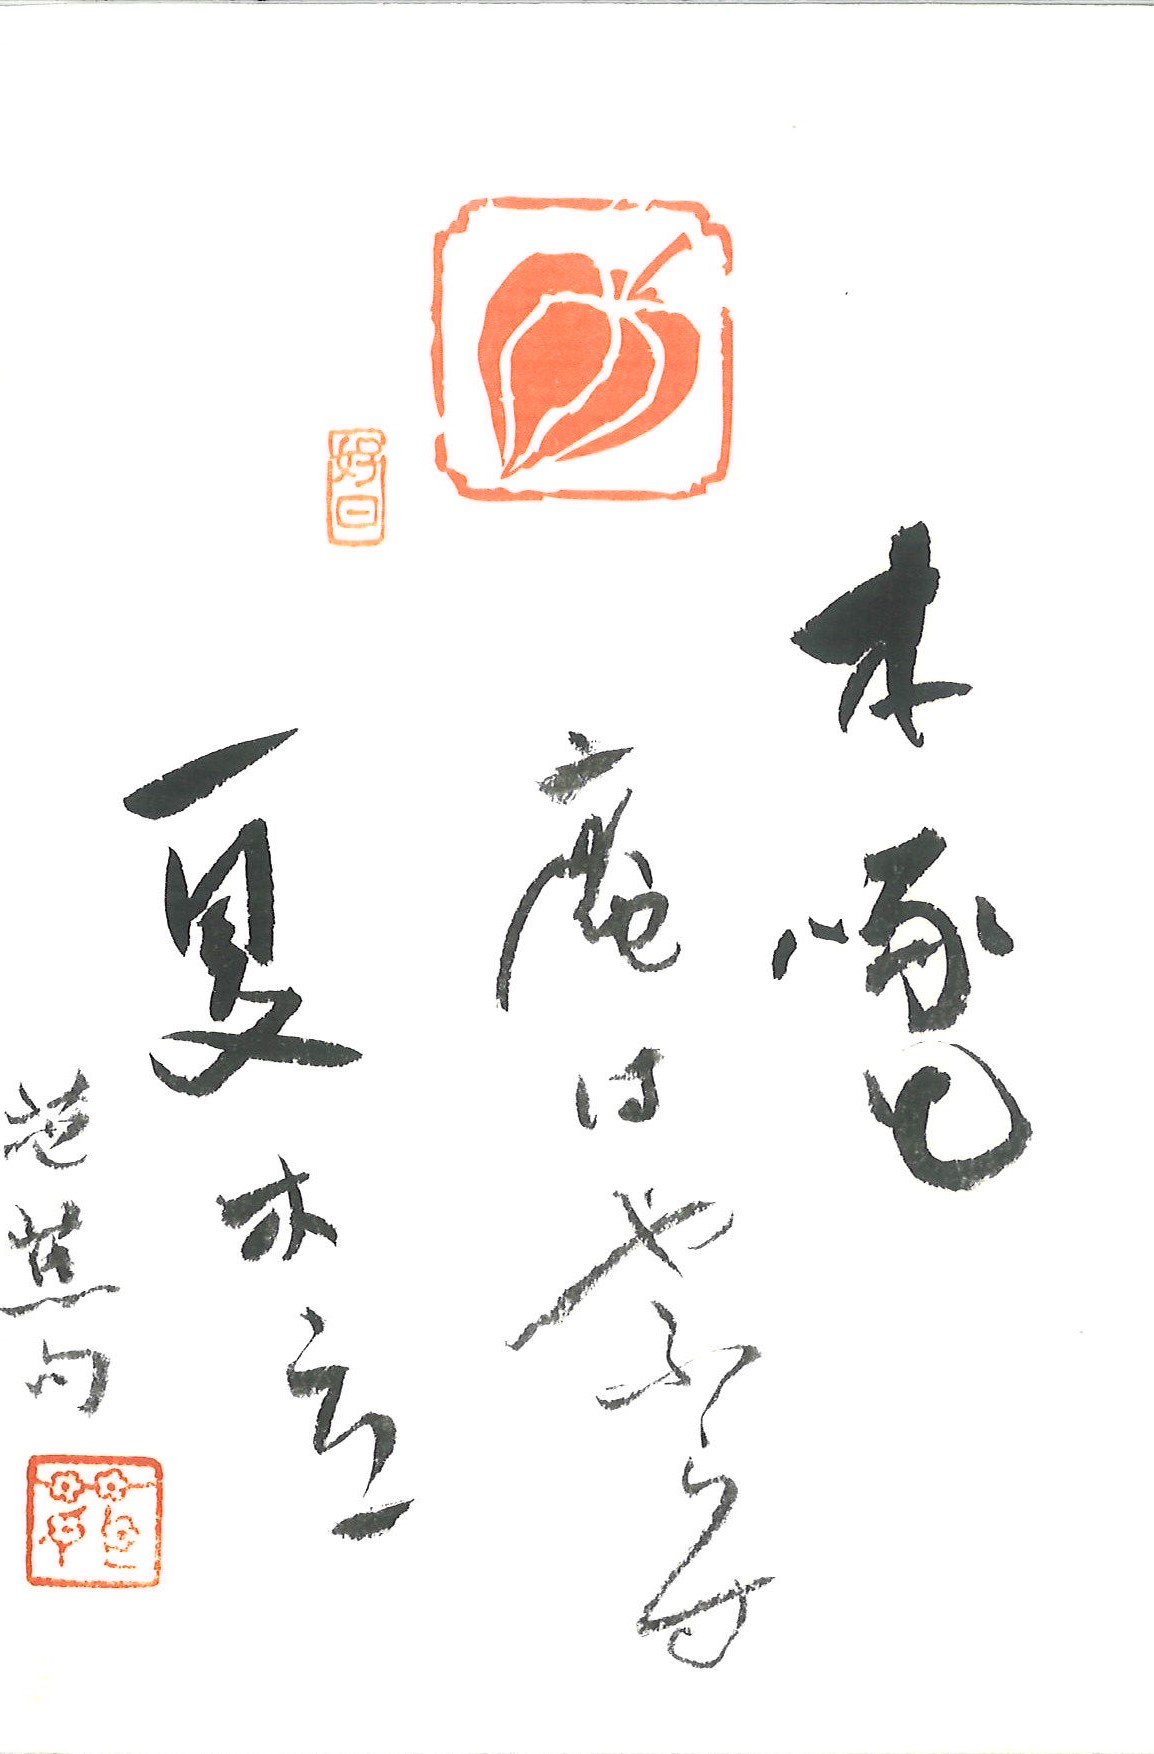 木啄も
庵はやふらす
夏木立
芭蕉句
好日